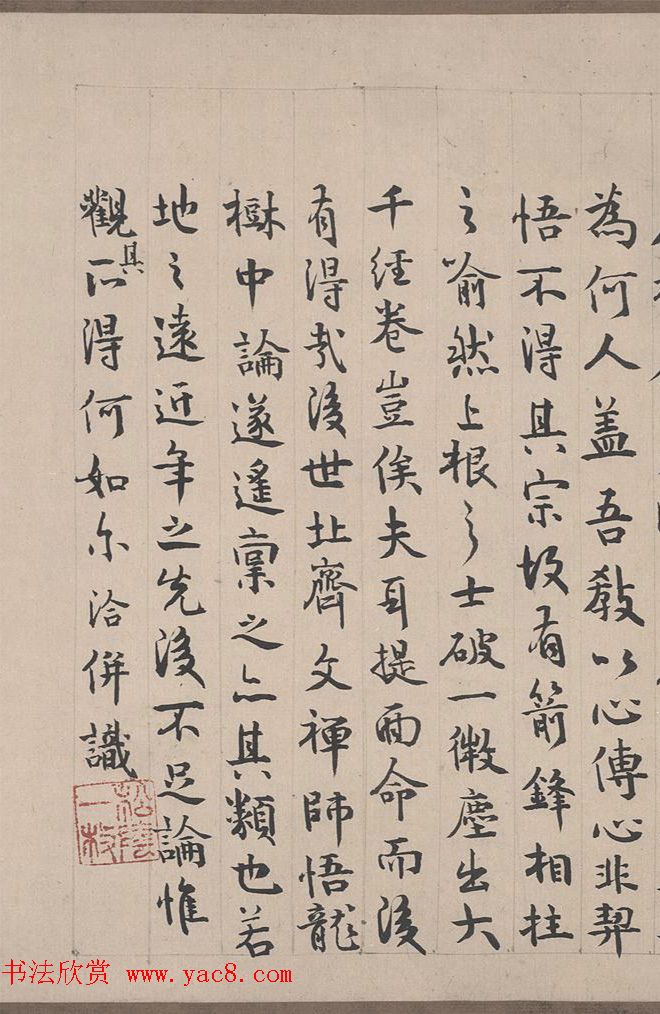 為何人盖吾教以心傳心非契
悟不得其宗故有箭鋒相拄
之喻然上根之士破一微塵出大
千經卷豈俟夫耳提面命而後
有得哉後世北齊文禅師悟龍
樹中論遂遙稟之亦其類也若
地之遠近年之先後不足論惟
觀其所得何如尔洽併識
松陰
一枝
书法欣赏 www.yac8.com